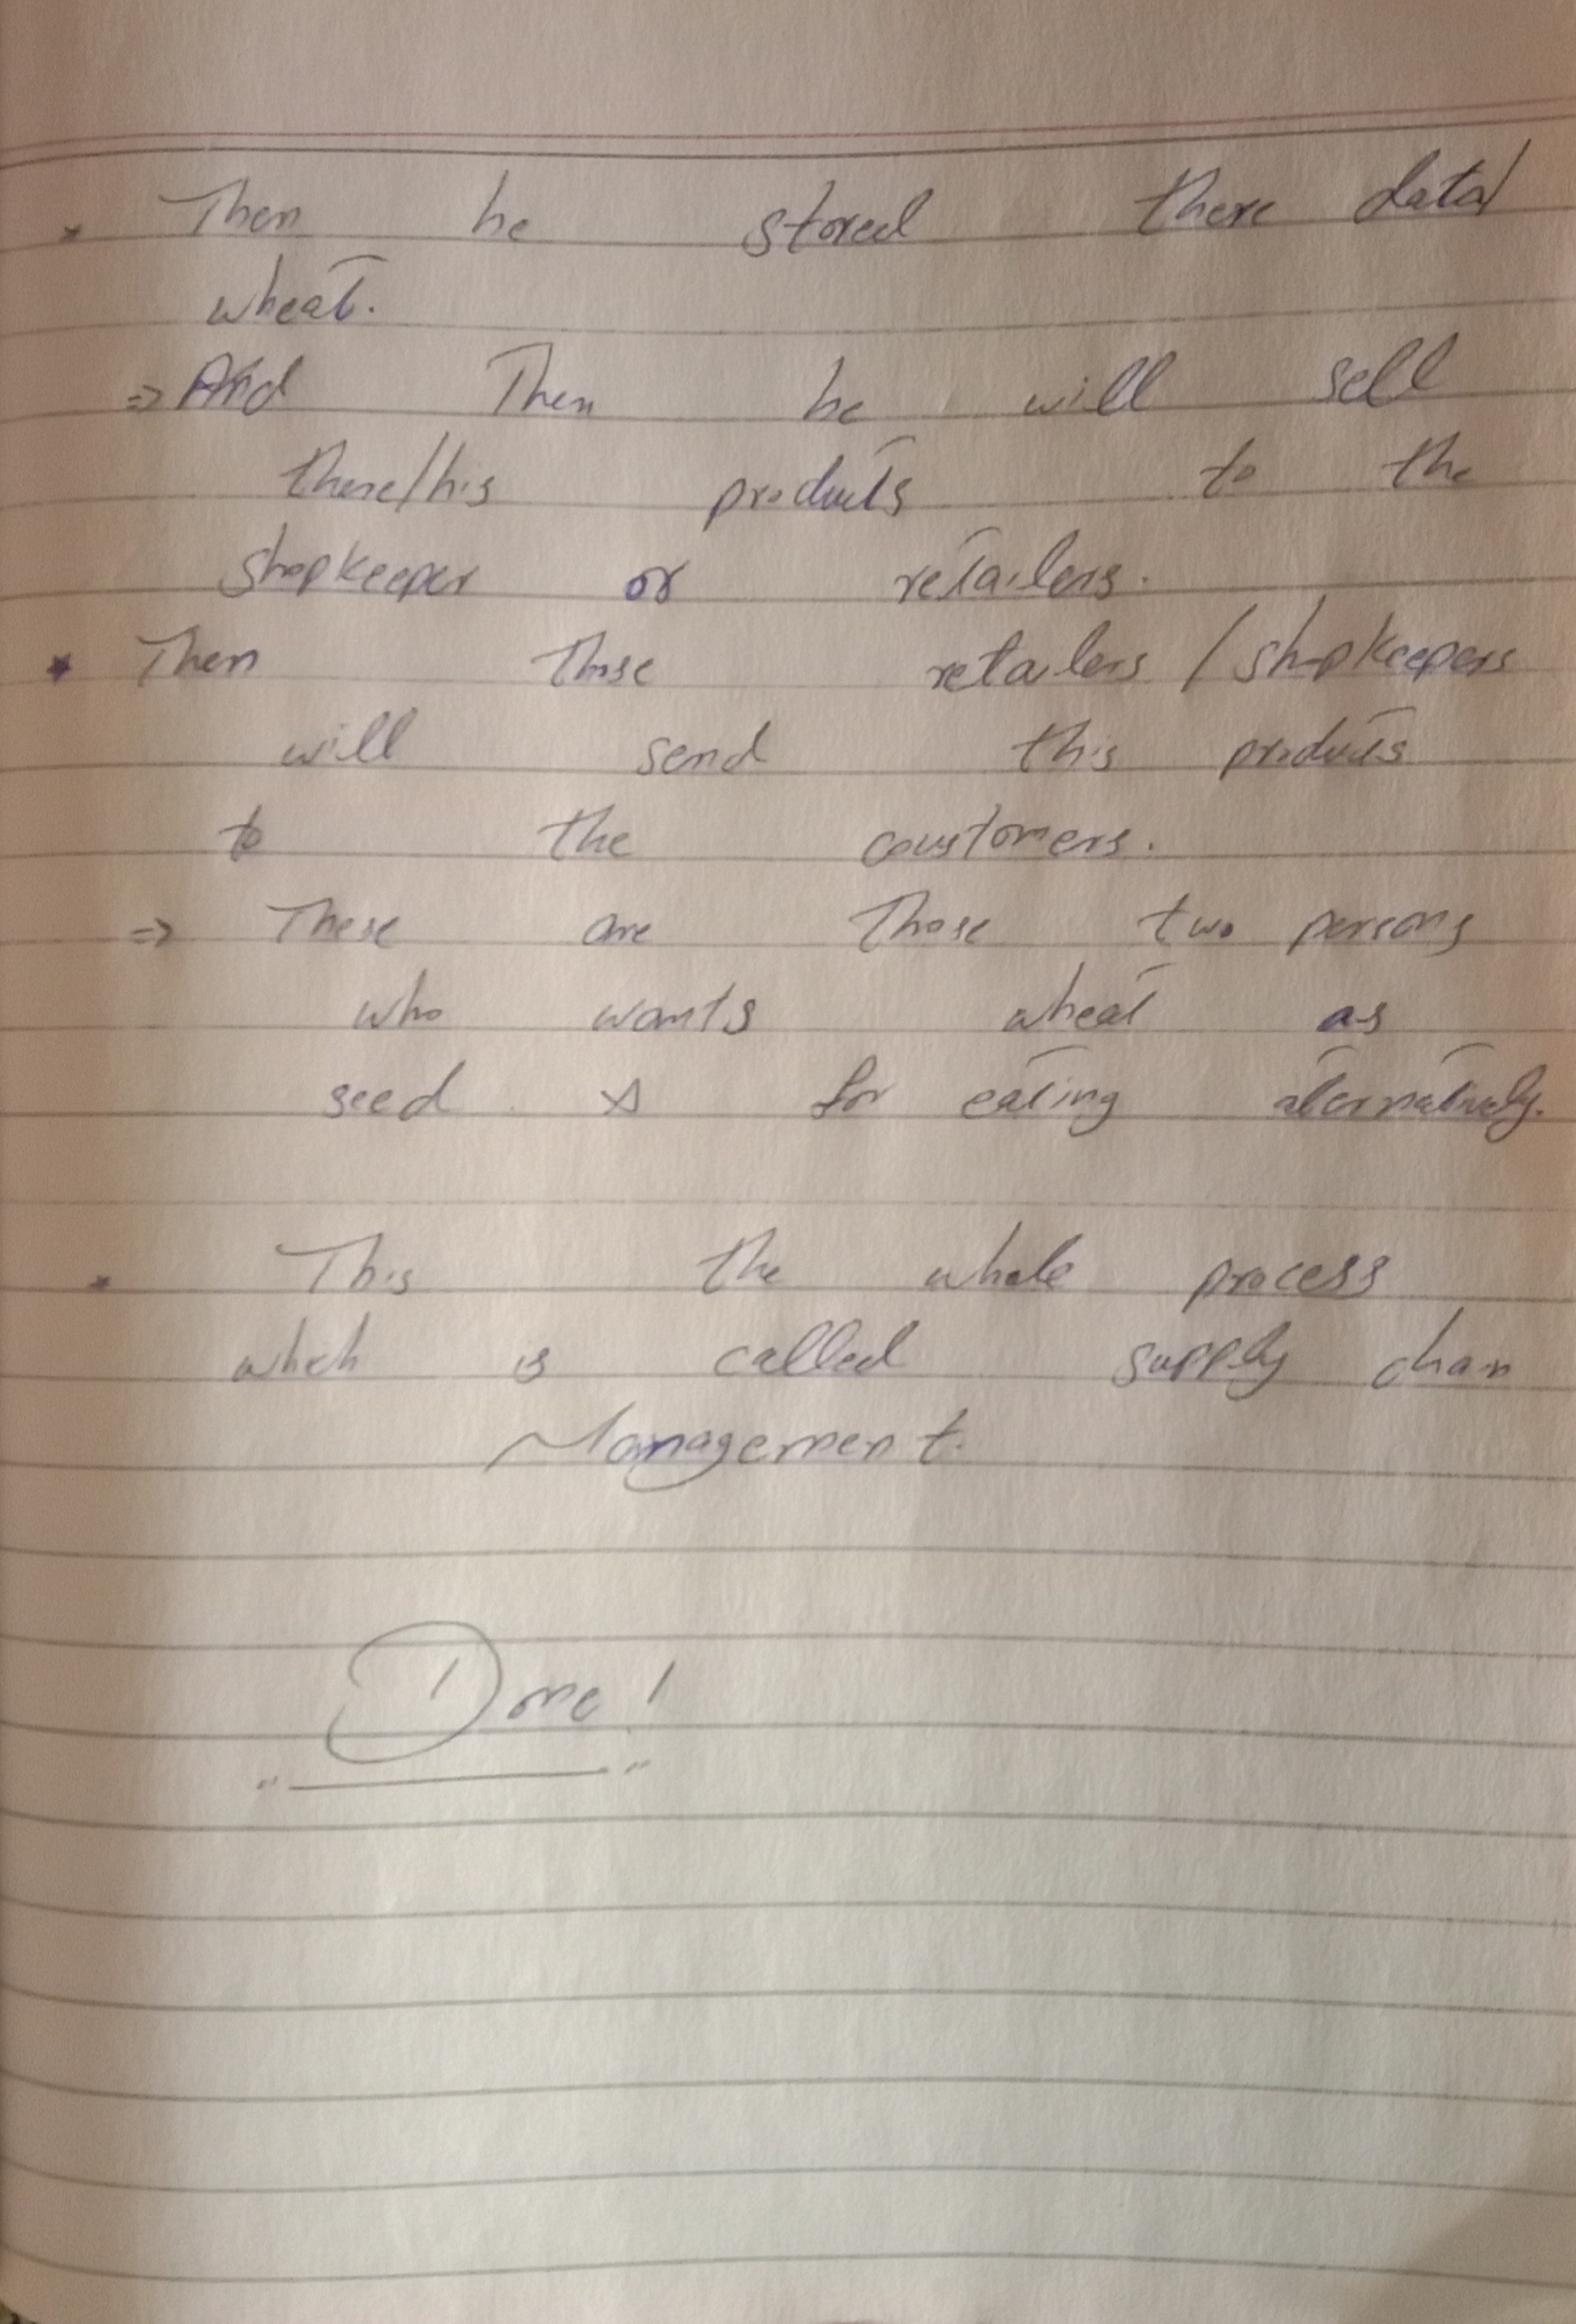 * Then he stored there data/
wheat.
⇒ And Then he will sell
there/his products to the
shopkeeper or retailers.
* Then those retailers / shopkeepers
will send this products
to the coustomers.
⇒ These are Those two persons
who wants wheat as
seed & for eating alternatively.
* This the whole process
which is called supply chain
Management.
Done!